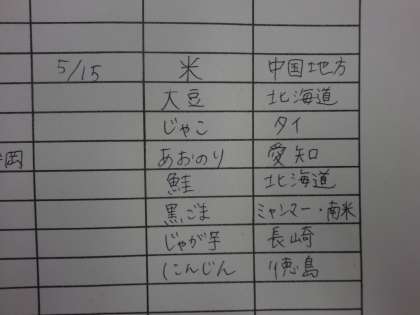 5/15 米 中国地方
大豆 北海道
じゃこ タイ
岡 あおのり 愛知
鮭 北海道
黒ごま ミャンマー・南米
じゃが芋 長崎
にんじん 徳島